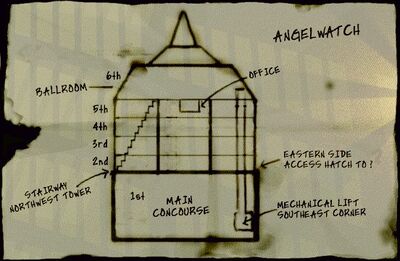 ANGELWATCH
6th
OFFICE
BALLROOM
5th
4th
3rd
2nd
EASTERN SIDE
ACCESS HATCH TO ?
STAIRWAY
NORTHWEST TOWER
1st
MAIN
CONCOURSE
MECHANICAL LIFT
SOUTHEAST CORNER